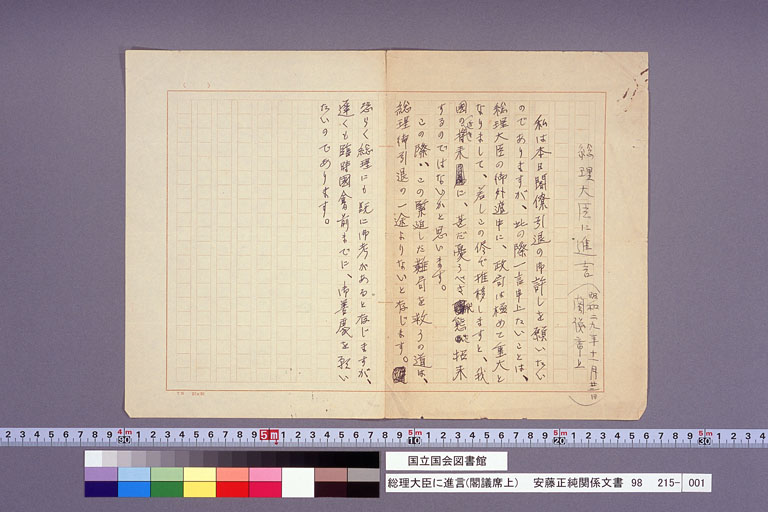 総理大臣に進言(昭和二九年十一月廿日
閣議席上)
私は本日閣僚引退の御許しを願いたい
のでありますが、此の際一言申上たいことは、
総理大臣の御外遊中に、政局は極めて重大と
なりまして、若しこの侭で推移しますと、我
国の将来に、甚だ憂うべき事態を招来
するのではないかと思います。
この際、この緊迫した難局を救うの道は、
総理御引退の一途よりないと存じます。
恐らく総理にも既に御考があると存じますが、
遅くも臨時国会前までに、御善処を願い
たいのであります。
国立国会図書館
総理大臣に進言(閣議席上) 安藤正純関係文書 98 215- 001